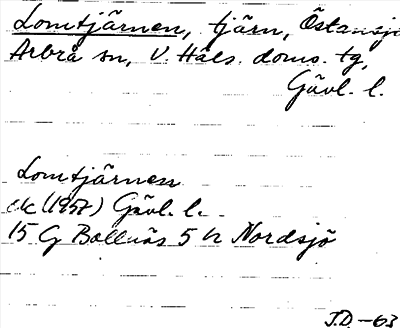 Lomtjärnen, tjärn, Östansjö
Arbrå sn, V. Häls. doms. tg,
Gävl. l.
Lomtjärnen
ek (1957) Gävl. l.
15 G Bollnäs 5 h Nordsjö
J.D. -63